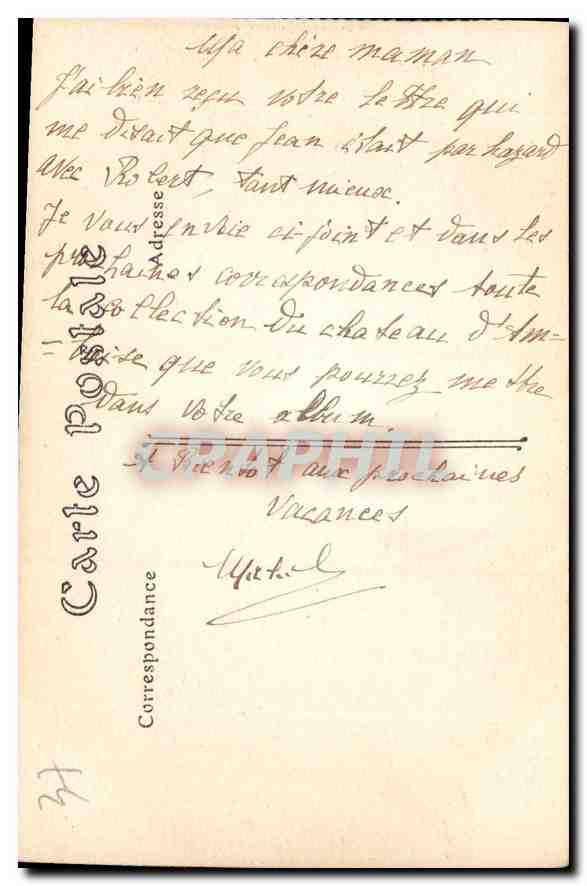 Ma chère maman
J'ai bien reçu votre lettre qui
me disait que Jean était par hazard
avec Robert, tant mieux.
Je vous envoie ci-joint et dans les
prochaines correspondances toute
la collection du chateau d'Am-
-boise que vous pourrez mettre
dans votre album.
A Bientôt aux prochaines
vacances
Carte postale
Correspondance
Adresse
CPAPHIL